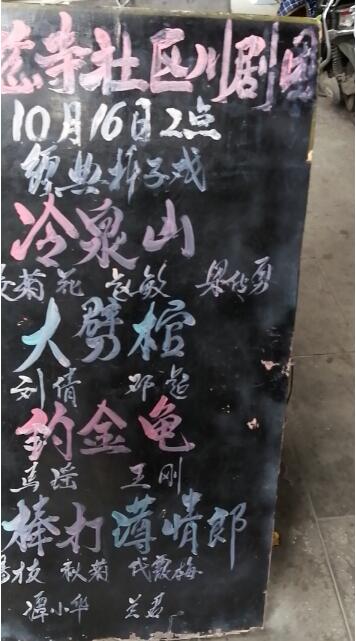 寺社区川剧团
10月16日2点
经典折子戏
冷泉山
菊花 敏
大劈棺
刘倩 邓超
钓金龟
马瑶 王刚
棒打薄情郎
秋菊 代霞梅
谭小华 兰君